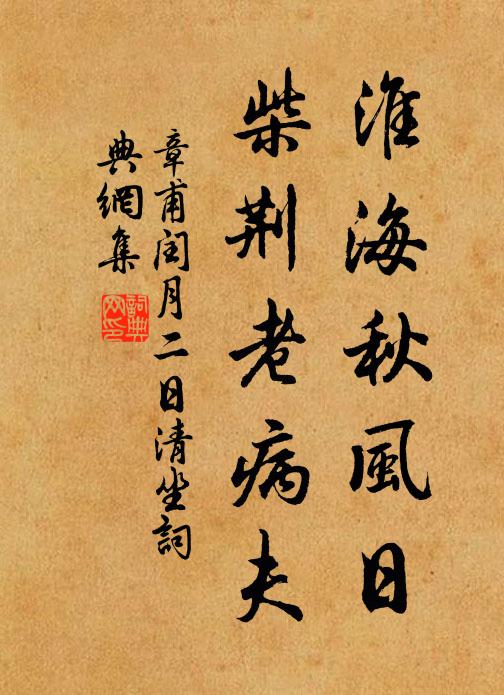 淮海秋風日
柴荆老病夫
章甫閏月二日清坐詞
典網集
詞典
网印